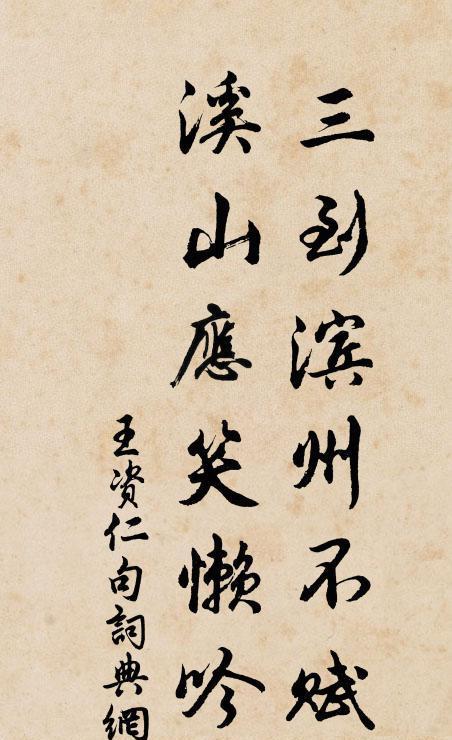 三到滨州不赋
溪山應笑懒吟
王资仁句詞典網